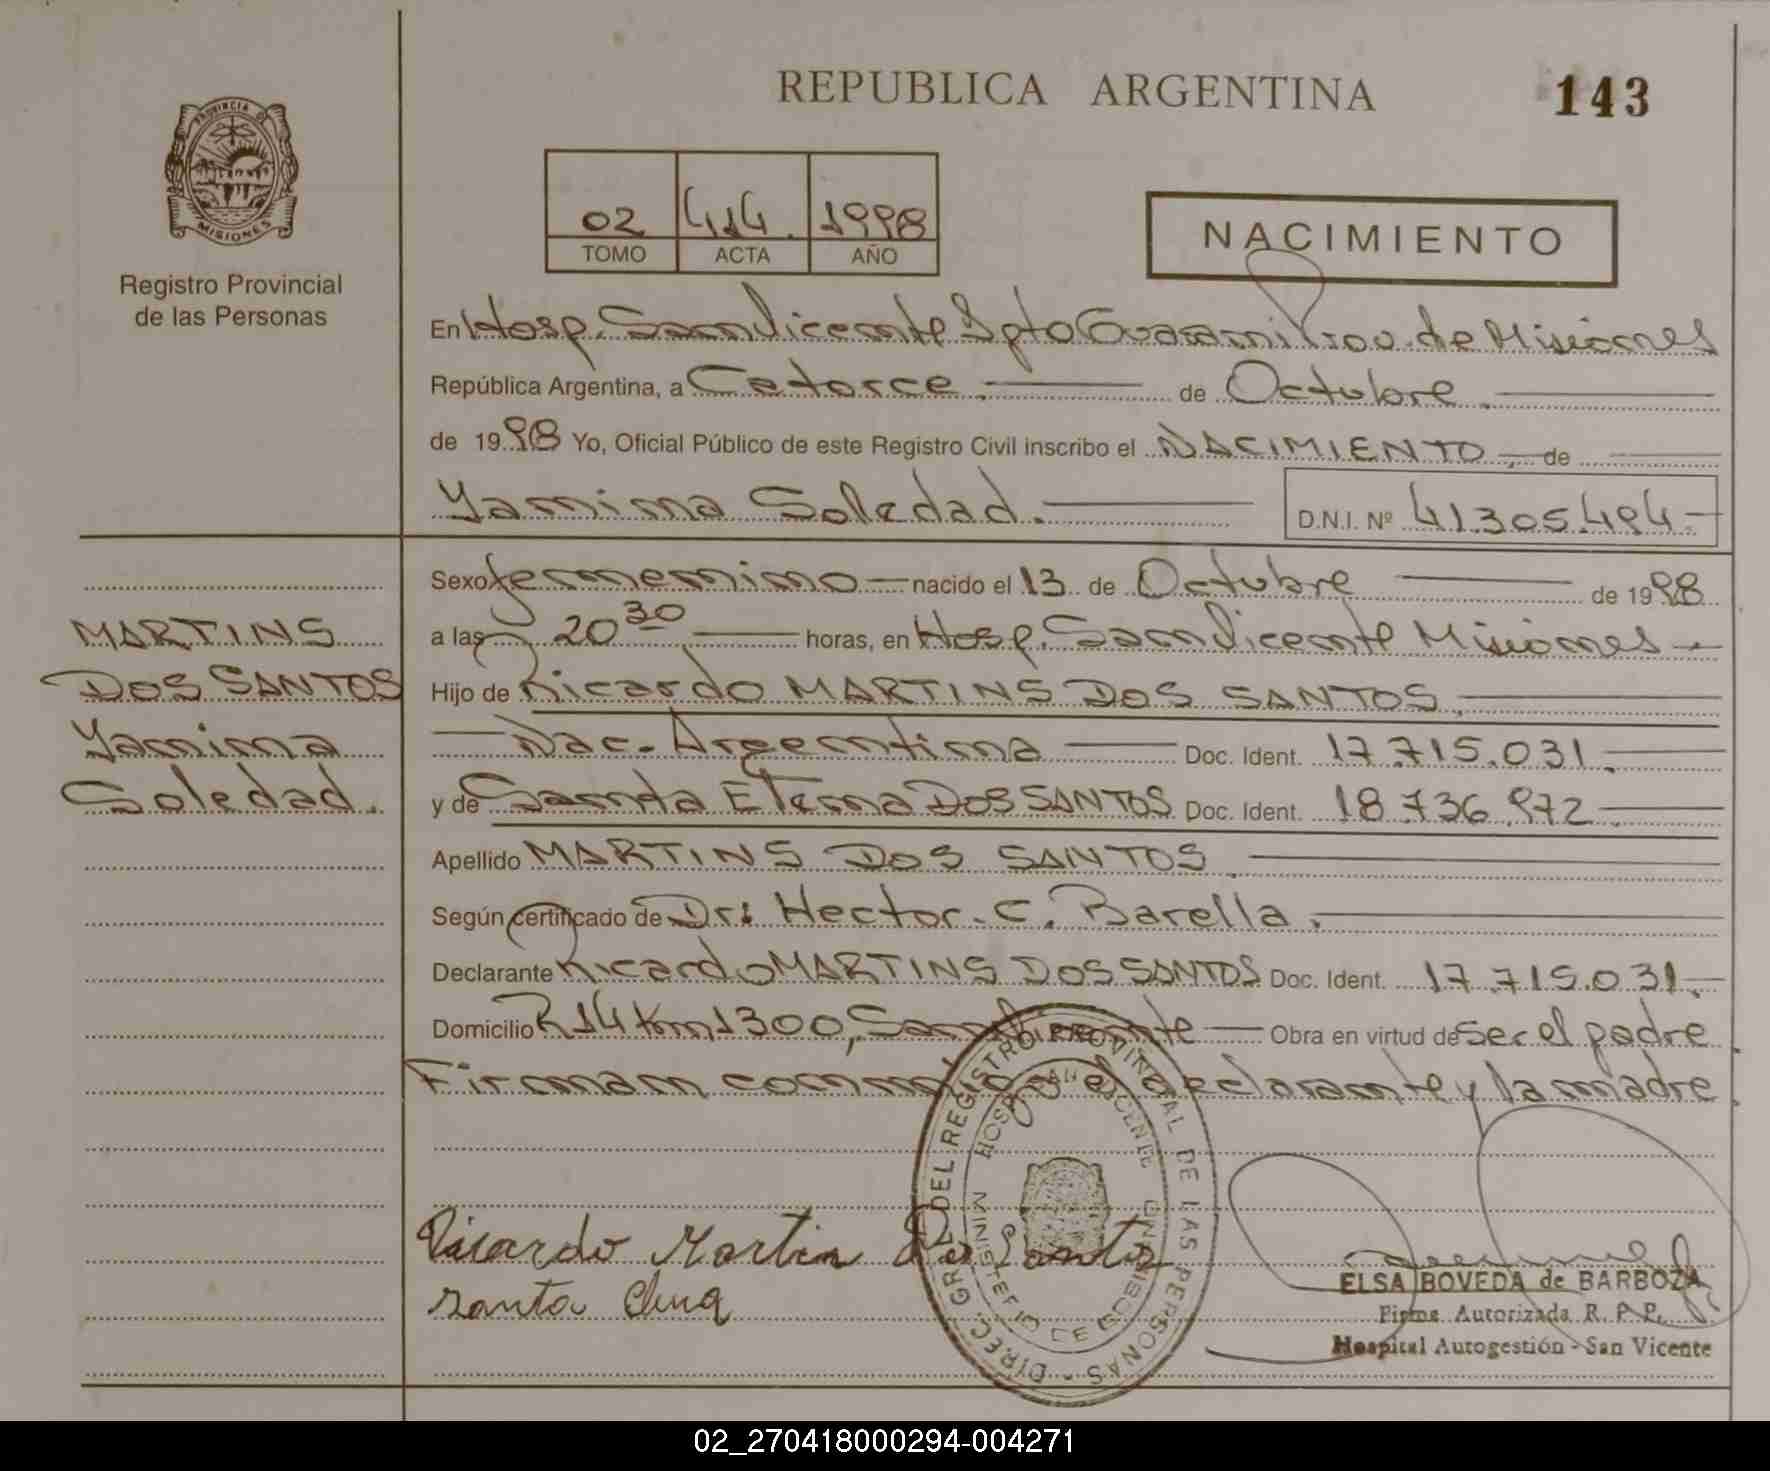 REPUBLICA ARGENTINA
143
PROVINCIA DE
MISIONES
Registro Provincial
de las Personas
02 414. 1998
TOMO ACTA AÑO
NACIMIENTO
En Hosp. San Vicente Dpto Guarani Prov. de Misiones
República Argentina, a Catorce. de Octubre.
de 1998 Yo, Oficial Público de este Registro Civil inscribo el NACIMIENTO de
Yamima Soledad.
D.N.I. Nº 41.305.494-
Sexo femenino nacido el 13 de Octubre de 1998
a las 20 30 horas, en Hosp. San Vicente Misiones
Hijo de Ricardo MARTINS DOS SANTOS.
Nac. Argentina Doc. Ident. 17.715.031.
y de Santa Elena DOS SANTOS Doc. Ident. 18.736.972
Apellido MARTINS DOS SANTOS.
Según certificado de Dr: Hector. C. Barella.
Declarante Ricardo MARTINS DOS SANTOS Doc. Ident. 17.715.031.
Domicilio R14 Km 1300, San Vicente Obra en virtud de ser el padre
Firman conmigo el declarante y la madre.
MARTINS
DOS SANTOS
Yamima
Soledad.
DIREC. GRAL DEL REGISTRO PROVINCIAL DE LAS PERSONAS
HOSP. SAN VICENTE
MINISTERIO DE GOBIERNO
Ricardo Martin Dos Santos
Santa Elena
ELSA BOVEDA de BARBOZA
Firma Autorizada R. P. P.
Hospital Autogestión - San Vicente
02_270418000294-004271